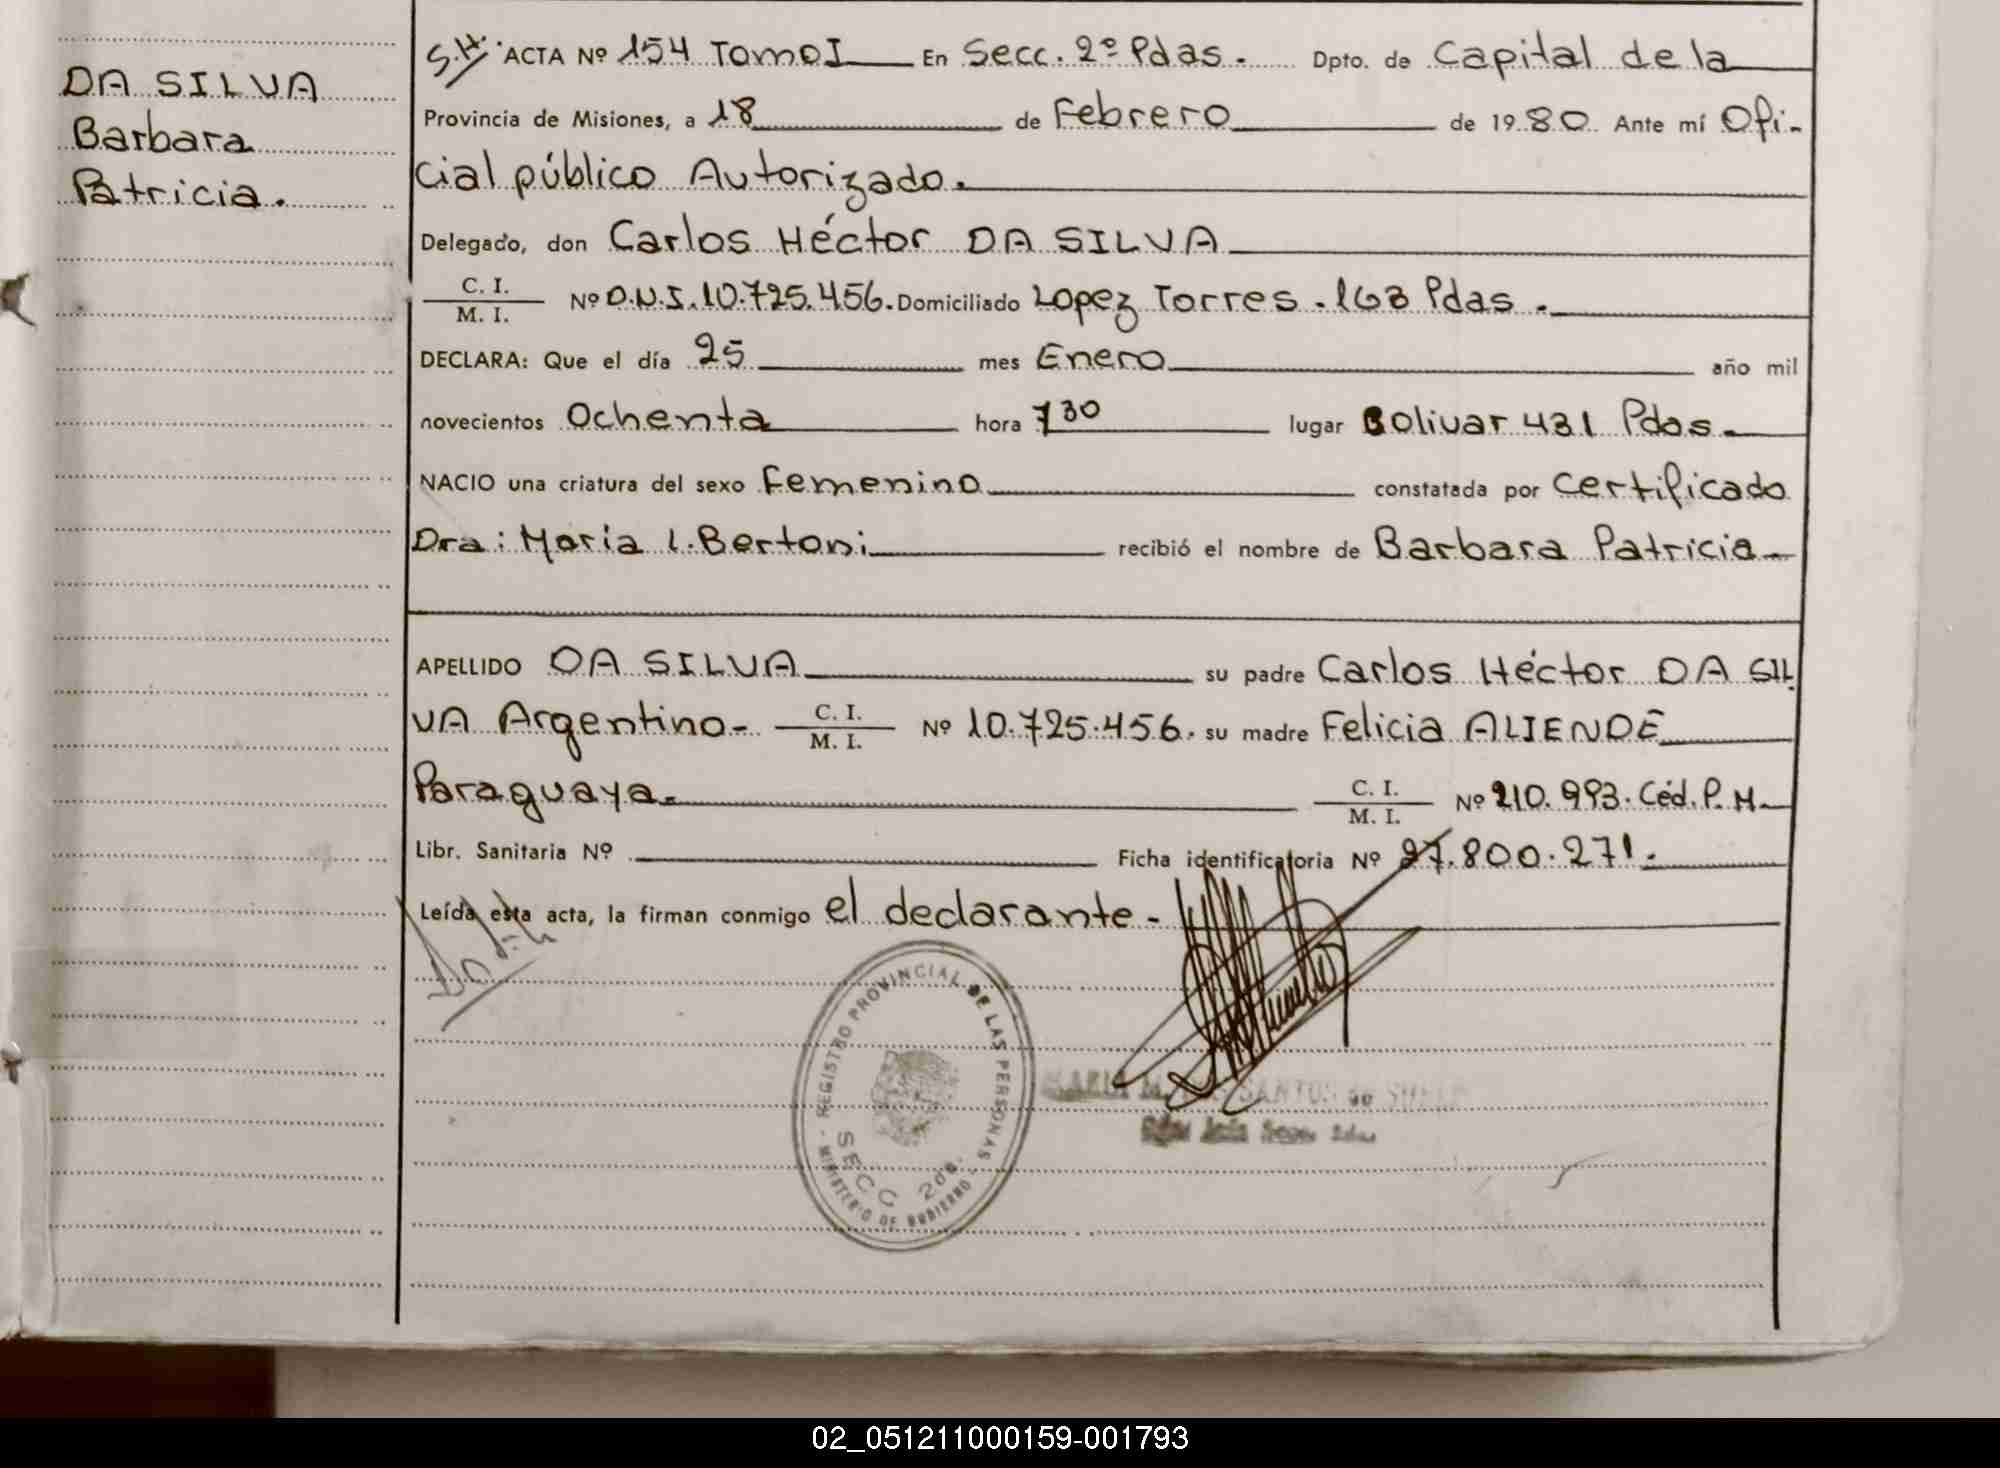 DA SILVA
Barbara
Patricia.
S.H. ACTA Nº 154 Tomo I En Secc. 2º Pdas. Dpto. de Capital de la
Provincia de Misiones, a 18 de Febrero de 1980. Ante mí Ofi-
cial público Autorizado.
Delegado, don Carlos Héctor DA SILVA
C. I.
M. I. Nº D.N.I. 10.725.456. Domiciliado Lopez Torres. 163 Pdas.
DECLARA: Que el día 25 mes Enero año mil
novecientos Ochenta hora 7 30 lugar Bolivar 431 Pdas.
NACIO una criatura del sexo Femenino constatada por certificado
Dra: Maria L. Bertoni recibió el nombre de Barbara Patricia
APELLIDO DA SILVA su padre Carlos Héctor DA SIL
VA Argentino- C. I.
M. I. Nº 10.725.456. su madre Felicia ALIENDE
Paraguaya. C. I.
M. I. Nº 210.993. Céd. P. M.
Libr. Sanitaria Nº Ficha identificatoria Nº 27.800.271.
Leída esta acta, la firman conmigo el declarante-
REGISTRO PROVINCIAL DE LAS PERSONAS
SECC 2da.
MINISTERIO DE GOBIERNO
SANTOS de
02_051211000159-001793